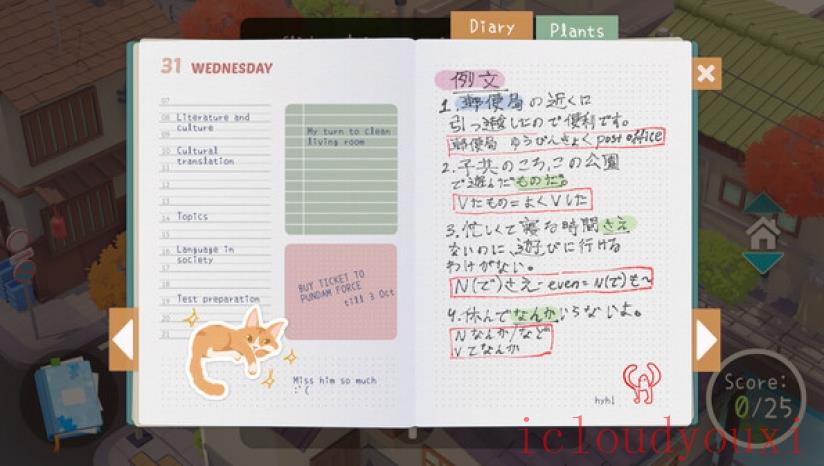 Diary
Plants
31 WEDNESDAY
07
08 Literature and
09 culture
10 Cultural
11 translation
12
13
14 Topics
15
16 Language in
society
19 Test preparation
20
21
My turn to clean
living room
BUY TICKET TO
PUNDAM FORCE
till 3 Oct
Miss him so much
:'(
例文
1. 郵便局の近くに
引っ越したので便利です。
郵便局 ゆうびんきょく post office
2. 子共のころ、この公園
で遊んだものだ。
Vたもの=よくVした
3. 忙しくて寝る時間さえ
ないのに、遊びに行ける
わけがない。
N(で)さえ-even=N(で)も~
4. 休んでなんかいらないよ。
Nなんか/など
Vてなんか
hyh!
Score:
0/25
icloudyouxi